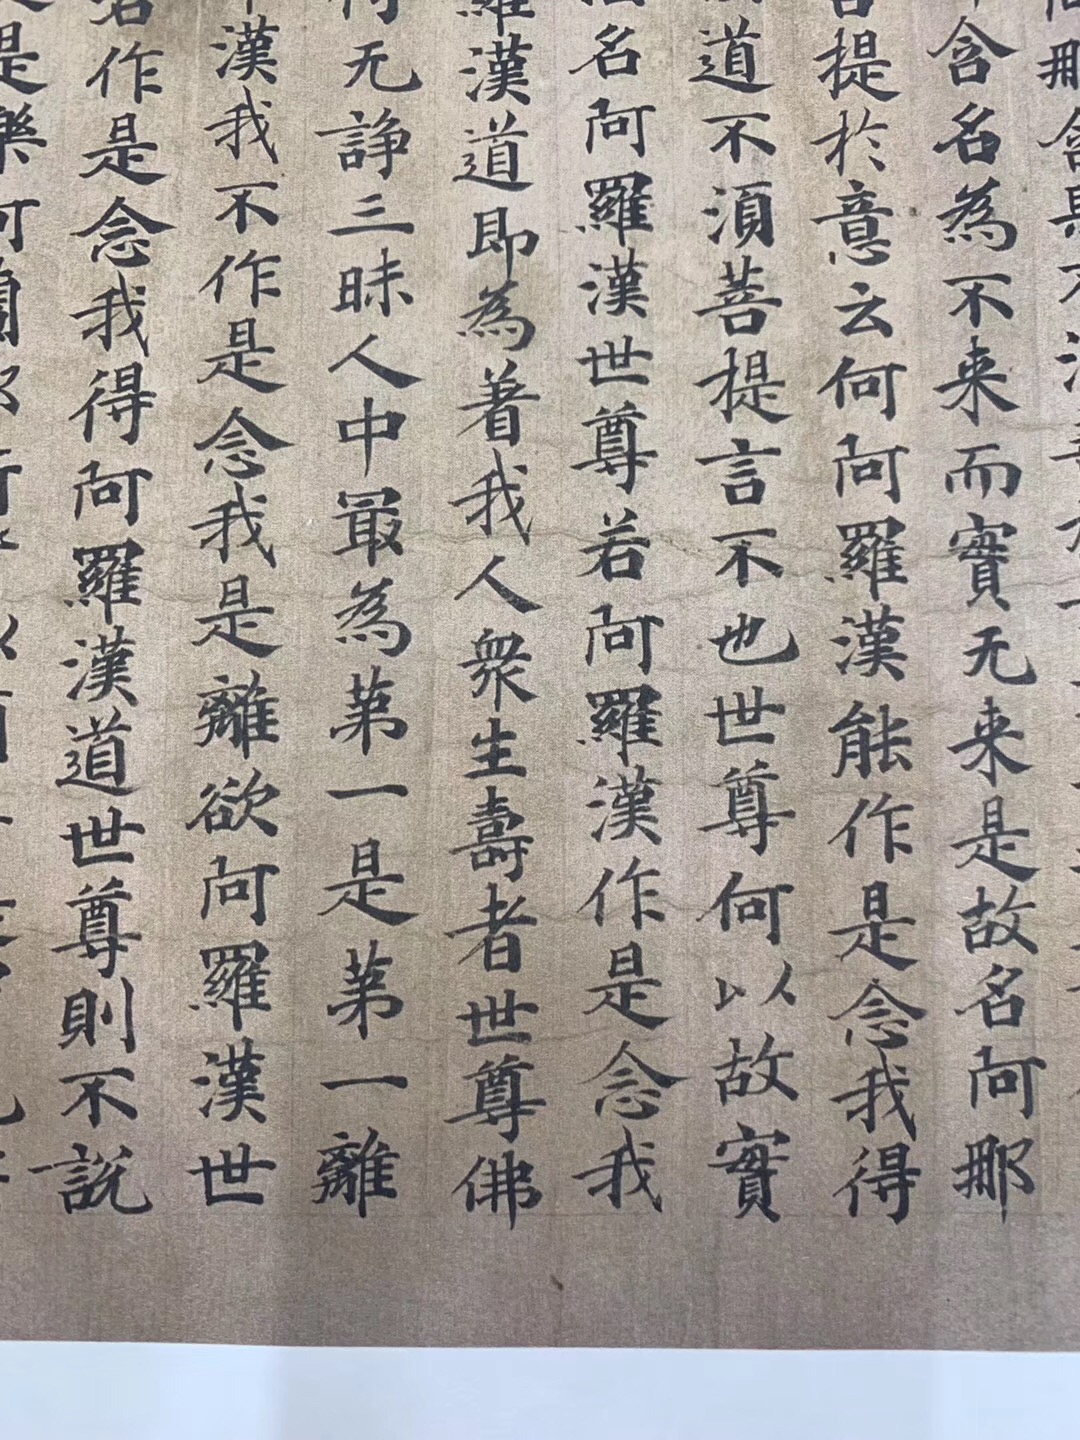 那含果不
含名為不来而實无来是故名阿那
提於意云何阿羅漢能作是念我得
道不湏菩提言不也世尊何以故實
名阿羅漢世尊若阿羅漢作是念我
羅漢道即為著我人衆生壽者世尊佛
得无諍三昧人中最為苐一是苐一離
漢我不作是念我是離欲阿羅漢世
若作是念我得阿羅漢道世尊則不說
是樂阿蘭那行